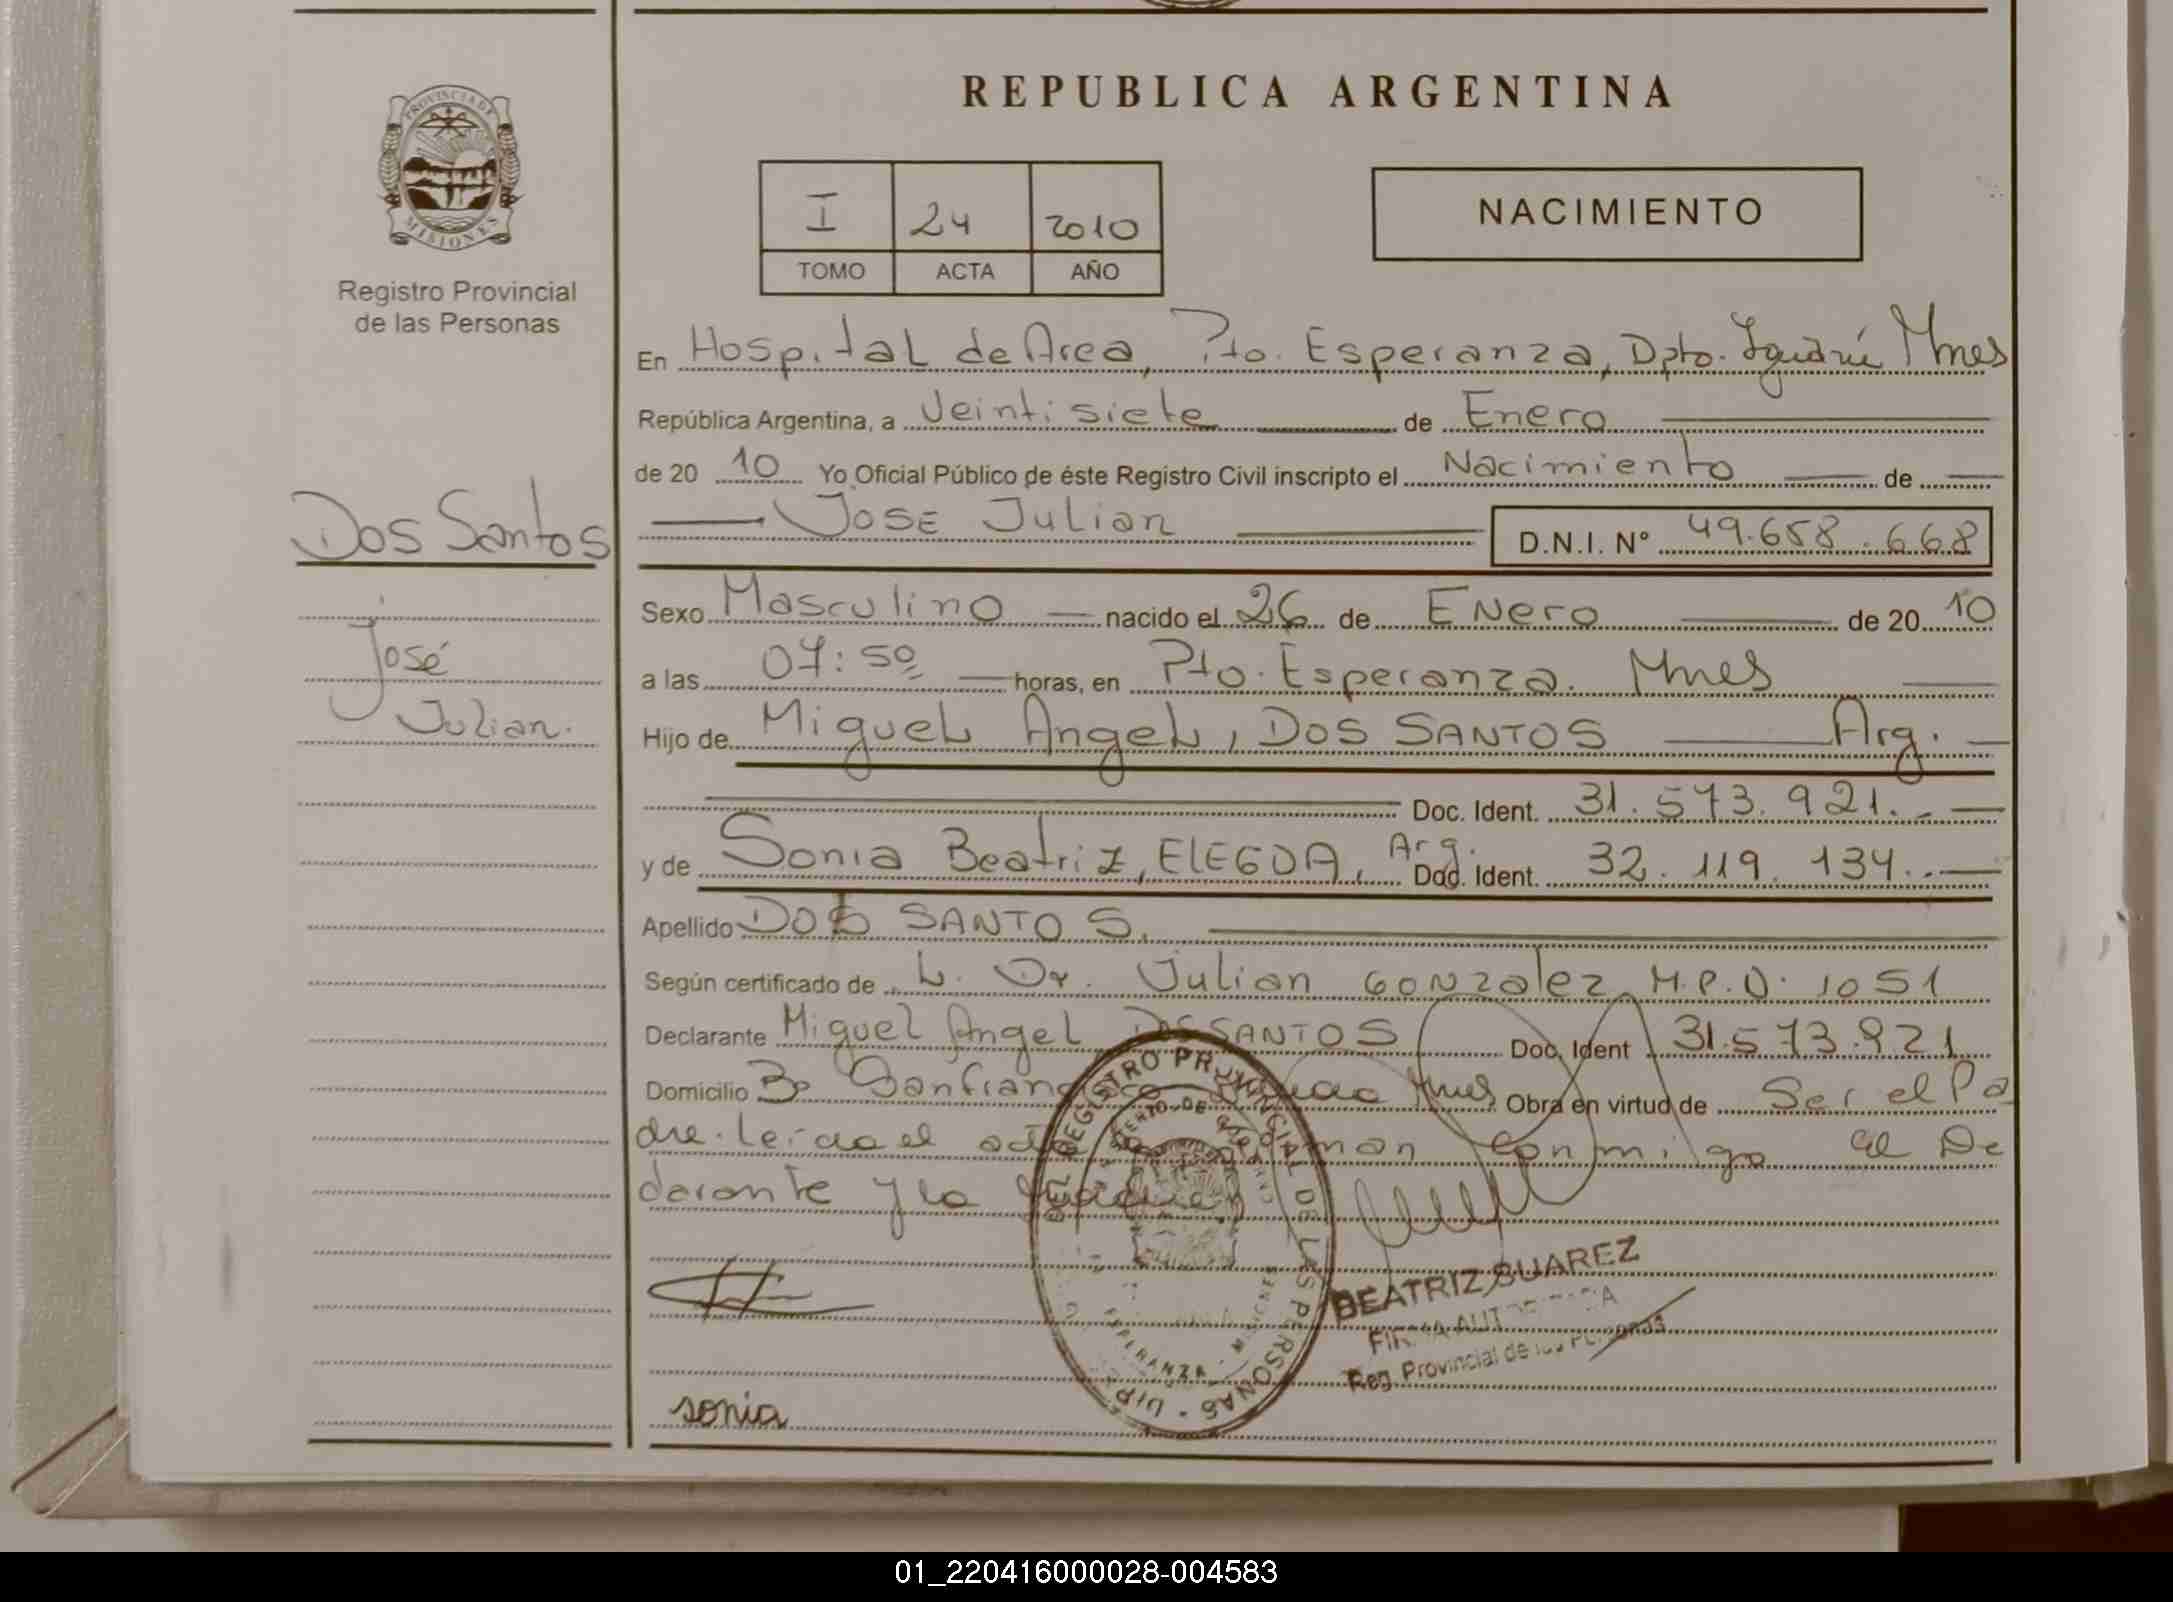 REPUBLICA ARGENTINA
PROVINCIA DE
MISIONES
Registro Provincial
de las Personas
I 24 2010
TOMO ACTA AÑO
NACIMIENTO
En Hospital de Area, Pto. Esperanza, Dpto. Iguazú Mnes
República Argentina, a Veintisiete de Enero
de 20 10 Yo Oficial Público de éste Registro Civil inscripto el Nacimiento de
Dos Santos
José
Julian.
José Julian D.N.I. N° 49.658.668
Sexo Masculino nacido el 26 de Enero de 20 10
a las 07:50 horas, en Pto. Esperanza. Mnes
Hijo de Miguel Angel, DOS SANTOS Arg.
Doc. Ident. 31.573.921.-
y de Sonia Beatriz, ELEGDA, Arg. Doc. Ident. 32.119.134.-
Apellido DOS SANTOS.
Según certificado de L. Dr. Julian Gonzalez M.P.N. 1051
Declarante Miguel Angel DOS SANTOS Doc. Ident 31.573.921
Domicilio Bº Mnes Obra en virtud de Ser el Pa
dre. Leida el acta firman conmigo el De
clarante y la
BEATRIZ SUAREZ
FIRMA AUTORIZADA
Reg. Provincial de las Personas
REGISTRO PROVINCIAL DE LAS PERSONAS
ESPERANZA - MISIONES
sonia
01_220416000028-004583